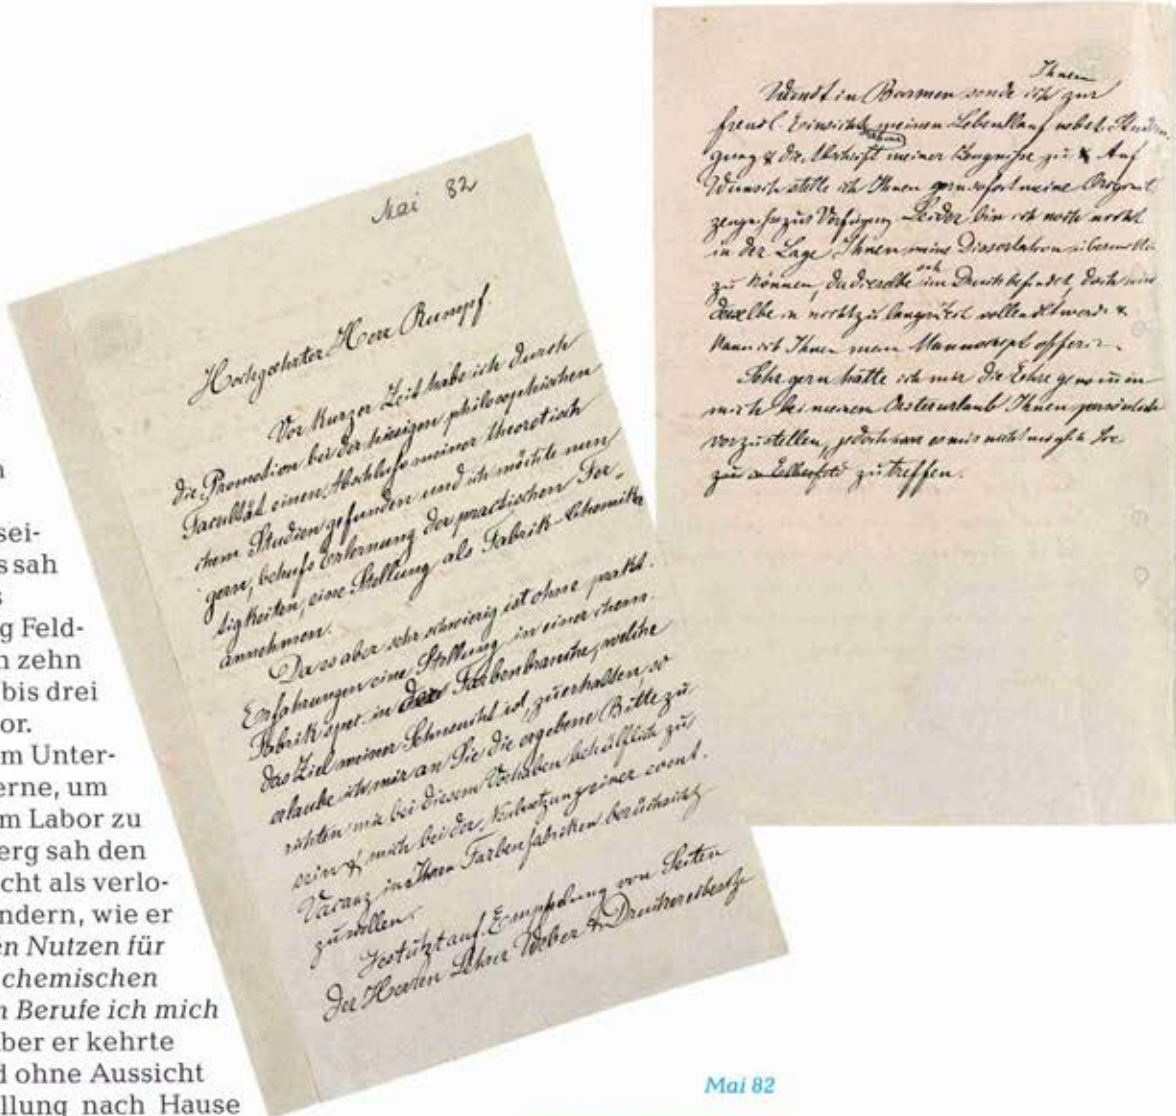 sei-
s sah
s
g Feld-
n zehn
bis drei
or.
m Unter-
erne, um
m Labor zu
erg sah den
cht als verlo-
ndern, wie er
en Nutzen für
chemischen
n Berufe ich mich
ber er kehrte
d ohne Aussicht
llung nach Hause
Mai 82
Hochgeehrter Herr Rumpf.
Vor kurzer Zeit habe ich durch
die Promotion bei der hiesigen philosophischen
Facultät einen Abschluß meiner theoretisch
chem. Studien gefunden und ich möchte nun
gern, behufs Erlernung der practischen Fer-
tigkeiten, eine Stellung als Fabrik-Chemiker
annehmen.
Da es aber sehr schwierig ist ohne prakt.
Erfahrungen eine Stellung in einer chem.
Fabrik spec. in der Farbenbranche, welche
das Ziel meiner Sehnsucht ist, zu erhalten, so
erlaube ich mir an Sie die ergebene Bitte zu
richten mir bei diesem Vorhaben behülflich zu
sein & mich bei der Neubesetzung einer event.
Vacanz in Ihren Farbenfabriken berücksicht
zu wollen.
Gestützt auf Empfehlung von Seiten
der Herren Lehrer Weber & Druckereibesitz
Ihnen
Wandt in Barmen sende ich zur
freundl. Einsicht meinen Lebenslauf nebst
gung & die Abschrift meiner Zeugniße zu & Auf
Wunsch stelle ich Ihnen gern sofort meine Original
zeugniße zur Verfügung Leider bin ich noch nicht
in der Lage Ihnen meine Dissertation übermitteln
zu können, da dieselbe sich im Druck befindet, doch wird
dieselbe in nicht zu langer Zeit vollendet werden &
kann ich Ihnen mein Manuscript offerir.
Sehr gern hätte ich mir die Ehre genommen
mich bei meinem Osterurlaub Ihnen persönlich
vorzustellen, jedoch war es mir nicht möglich Sie
zu in Elberfeld zu treffen.
Mai 82